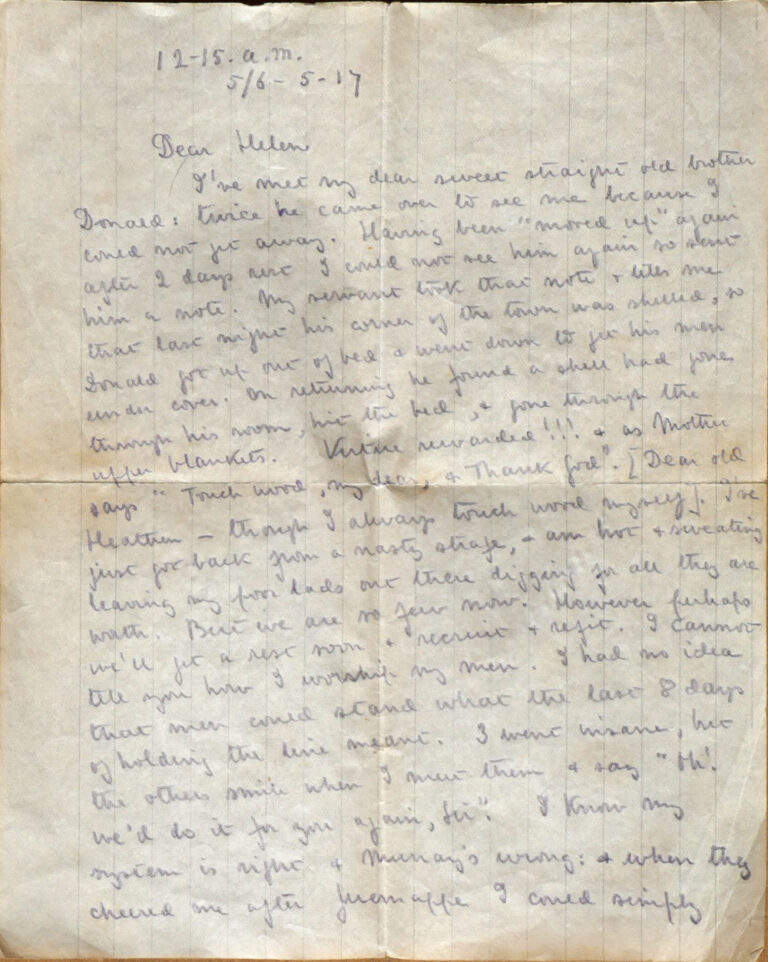 12-15. a.m.
5/6 - 5 - 17
Dear Helen
I've met my dear sweet straight old brother
Donald: twice he came over to see me because I
could not get away. Having been "moved up" again
after 2 days rest I could not see him again so sent
him a note. My servant took that note & tells me
that last night his corner of the town was shelled, so
Donald got up out of bed & went down to get his men
under cover. On returning he found a shell had gone
through his room, hit the bed, & gone through the
upper blankets. Virtue rewarded!!! & as Mother
says "Touch wood, my dear, & Thank God". [Dear old
Heathen – though I always touch wood myself]. I've
just got back from a nasty strafe, & am hot & sweating
leaving my poor lads out there digging for all they are
worth. But we are so few now. However perhaps
we'll get a rest soon & recruit & refit. I cannot
tell you how I worship my men. I had no idea
that men could stand what the last 8 days
of holding the line meant. 3 went insane, but
the others smile when I meet them & say "Oh!
we'd do it for you again, Sir". I know my
system is right & Murray's wrong: & when they
cheered me after I could simply